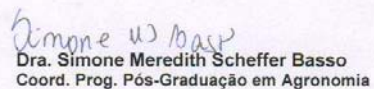 Simone M S Basso
Dra. Simone Meredith Scheffer Basso
Coord. Prog. Pós-Graduação em Agronomia